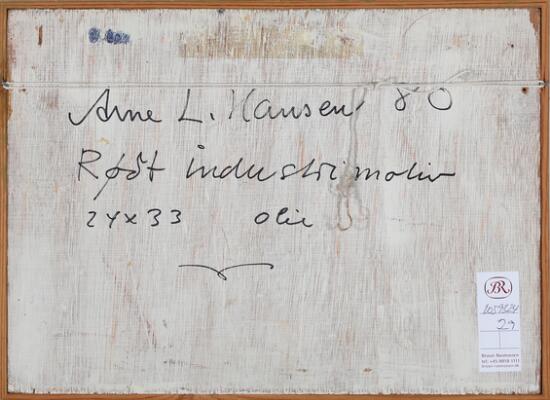 Arne L. Hansen 80
Rødt industrimotiv
24x33 olie
BR
29
Bruun Rasmussen